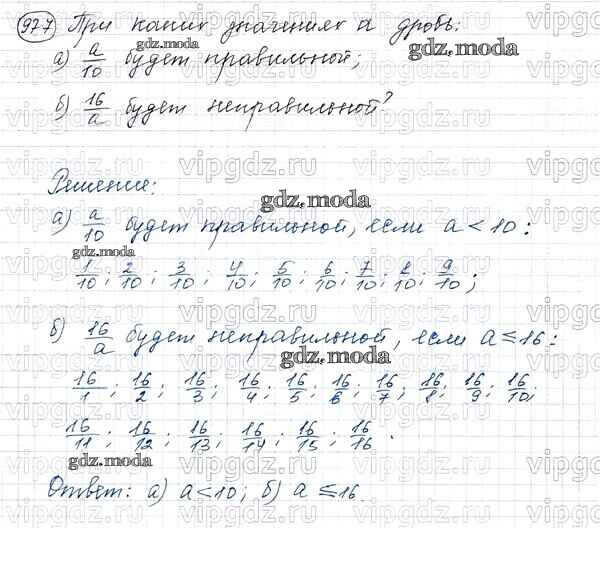 977 При каких значениях a дробь:
а) a/10 будет правильной;
б) 16/a будет неправильной?
Решение:
а) a/10 будет правильной, если a < 10:
1/10; 2/10; 3/10; 4/10; 5/10; 6/10; 7/10; 8/10; 9/10;
б) 16/a будет неправильной, если a ≤ 16:
16/1; 16/2; 16/3; 16/4; 16/5; 16/6; 16/7; 16/8; 16/9; 16/10;
16/11; 16/12; 16/13; 16/14; 16/15; 16/16.
Ответ: а) a<10; б) a ≤ 16.
gdz.moda
gdz.moda
gdz.moda
gdz.moda
gdz.moda
gdz.moda
vipgdz.ru